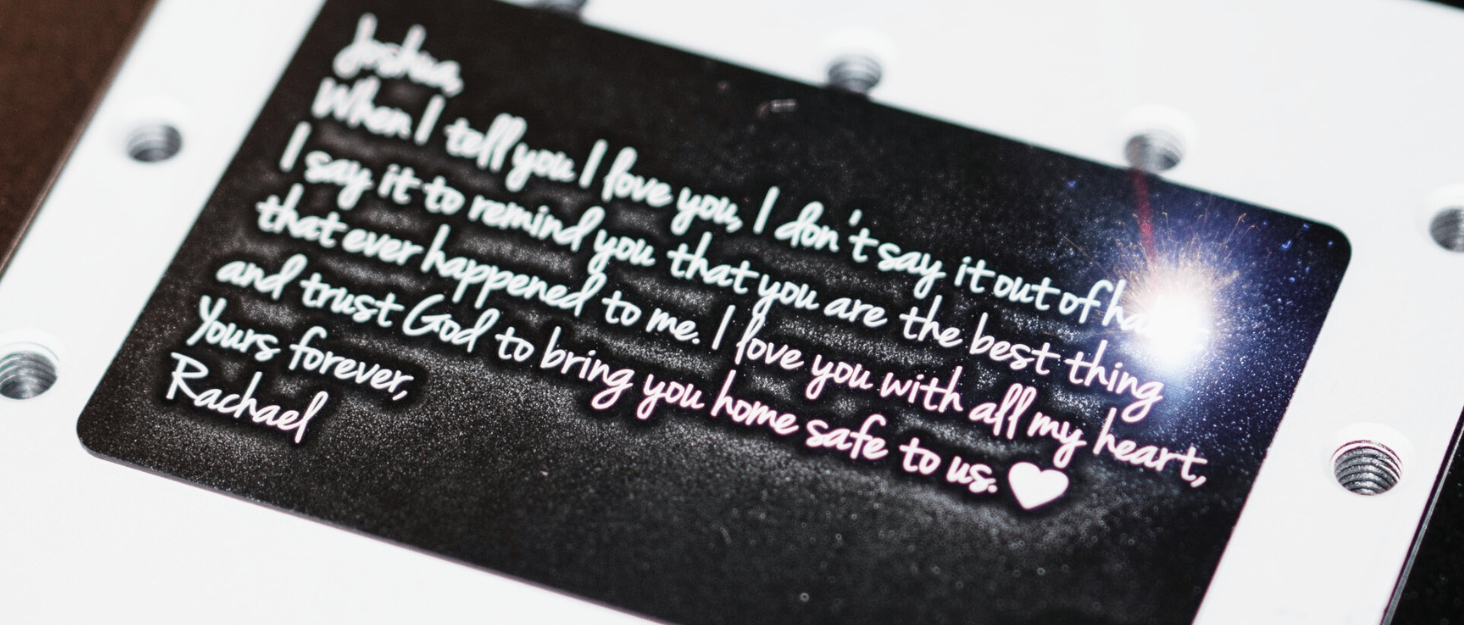 Joshua,
When I tell you I love you, I don't say it out of
I say it to remind you that you are the best thing
that ever happened to me. I love you with all my heart,
and trust God to bring you home safe to us. ♥
Yours forever,
Rachael